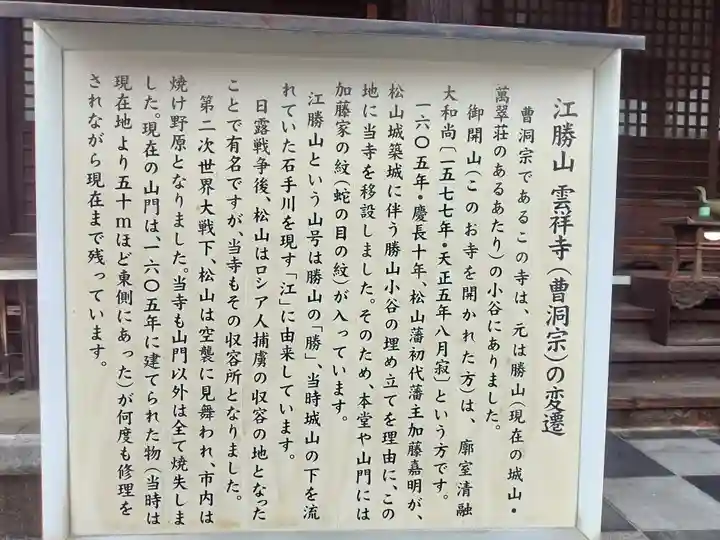 江勝山 雲祥寺(曹洞宗)の変遷
曹洞宗であるこの寺は、元は勝山(現在の城山・
萬翠荘のあるあたり)の小谷にありました。
御開山(このお寺を開かれた方)は、廓室清融
大和尚〔一五七七年・天正五年八月寂〕という方です。
一六〇五年・慶長十年、松山藩初代藩主加藤嘉明が、
松山城築城に伴う勝山小谷の埋め立てを理由に、この
地に当寺を移設しました。そのため、本堂や山門には
加藤家の紋(蛇の目の紋)が入っています。
江勝山という山号は勝山の「勝」、当時城山の下を流
れていた石手川を現す「江」に由来しています。
日露戦争後、松山はロシア人捕虜の収容の地となった
ことで有名ですが、当寺もその収容所となりました。
第二次世界大戦下、松山は空襲に見舞われ、市内は
焼け野原となりました。当寺も山門以外は全て焼失しま
した。現在の山門は、一六〇五年に建てられた物(当時は
現在地より五十mほど東側にあった)が何度も修理を
されながら現在まで残っています。